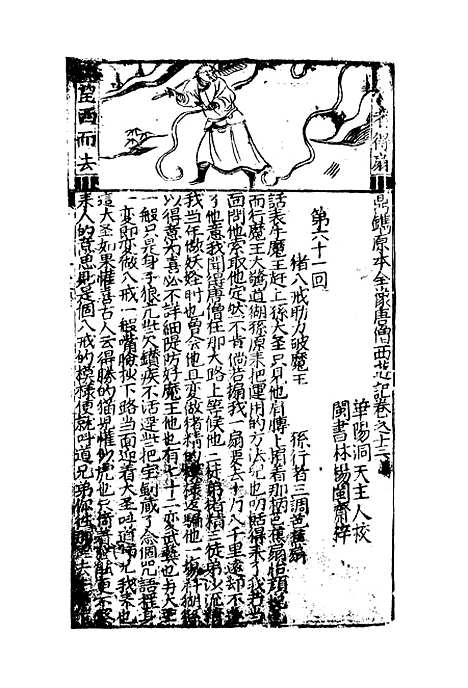 孫得扇
望西而去
鼎鐫原本全像唐僧西遊記卷之十三
華陽洞天主人校
閩書林楊閩齋梓
第六十一回
猪八戒助力破魔王 孫行者三調芭蕉扇
話表牛魔王赶上孫大圣只見他肩膊上掮着那柄芭蕉扇怡顏悅色
而行魔王大驚道猢猻原來把運用的方法兒也叨餂得來了我若當
面問他索取他定然不肯倘若搧我一扇要去十万八千里遠却不遂
了他意我聞得唐僧在那大路上等候他二徒弟猪精三徒弟沙流精
我當年做妖怪時也曾會他且变做猪精的模樣返騙他一塲料猢猻
以得意为喜必不詳細提防好魔王他也有七十二变武藝也与大圣
一般只是身子狼犺些欠鑽疾不活達些把宝劍藏了念個咒語揺身
一变即变做八戒一般嘴臉抄下路当面迎着大圣叫道师兄我來也
這大圣如果惟喜古人云得勝的猫兒惟如虎也只倚着強能更不察
來人的意思見是個八戒的模樣便就叫道兄弟你往